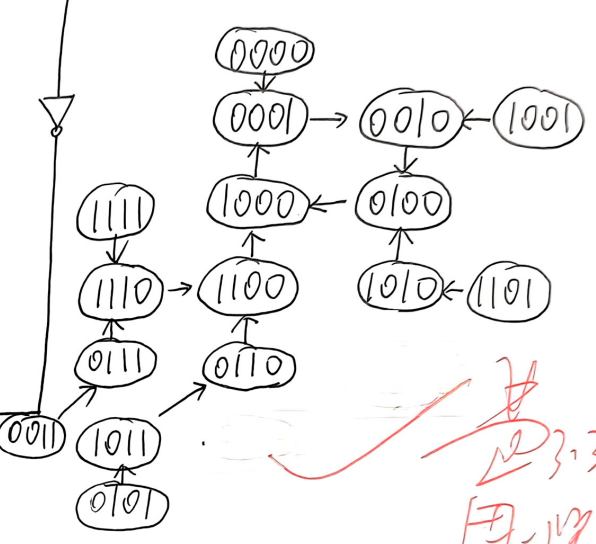 0000
0001
0010
1001
1111
1000
0100
1110
1100
1010
1101
0111
0110
0011
1011
0101